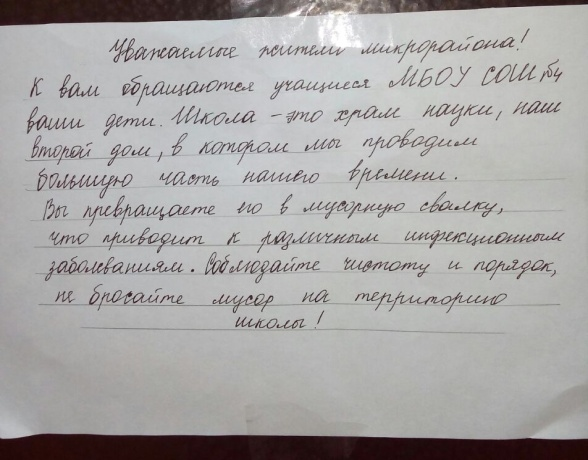 Уважаемые жители микрорайона!
К вам обращаются учащиеся МБОУ СОШ №4
ваши дети. Школа - это храм науки, наш
второй дом, в котором мы проводим
большую часть нашего времени.
Вы превращаете его в мусорную свалку,
что приводит к различным инфекционным
заболеваниям. Соблюдайте чистоту и порядок,
не бросайте мусор на территорию
школы!